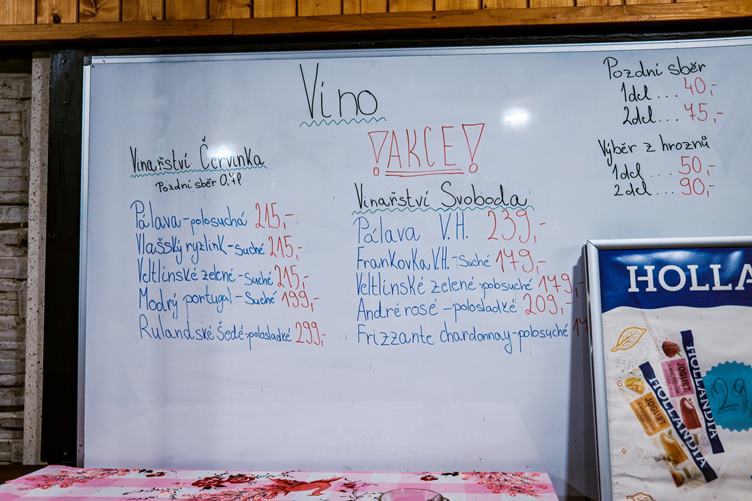 Víno
Vinařství Červinka
Pozdní sběr 0,7l
Pálava-polosuchá 215,-
Vlašský ryzlink-suché 215,-
Veltlínské zelené-suché 215,-
Modrý portugal-suché 199,-
Rulandské Šedé-polosladké 299,-
!AKCE!
Vinařství Svoboda
Pálava V.H. 239,-
Frankovka V.H.-suché 179,-
Veltlínské zelené-polosuché 179,-
André rosé-polosladké 209,-
Frizzante chardonnay-polosuché
Pozdní sběr
1dcl.... 40,-
2dcl... 75,-
Výběr z hroznů
1dcl.... 50,-
2dcl... 90,-
HOLLA
HOLLANDIA
HOLLANDIA
JOGURT
JOGURT